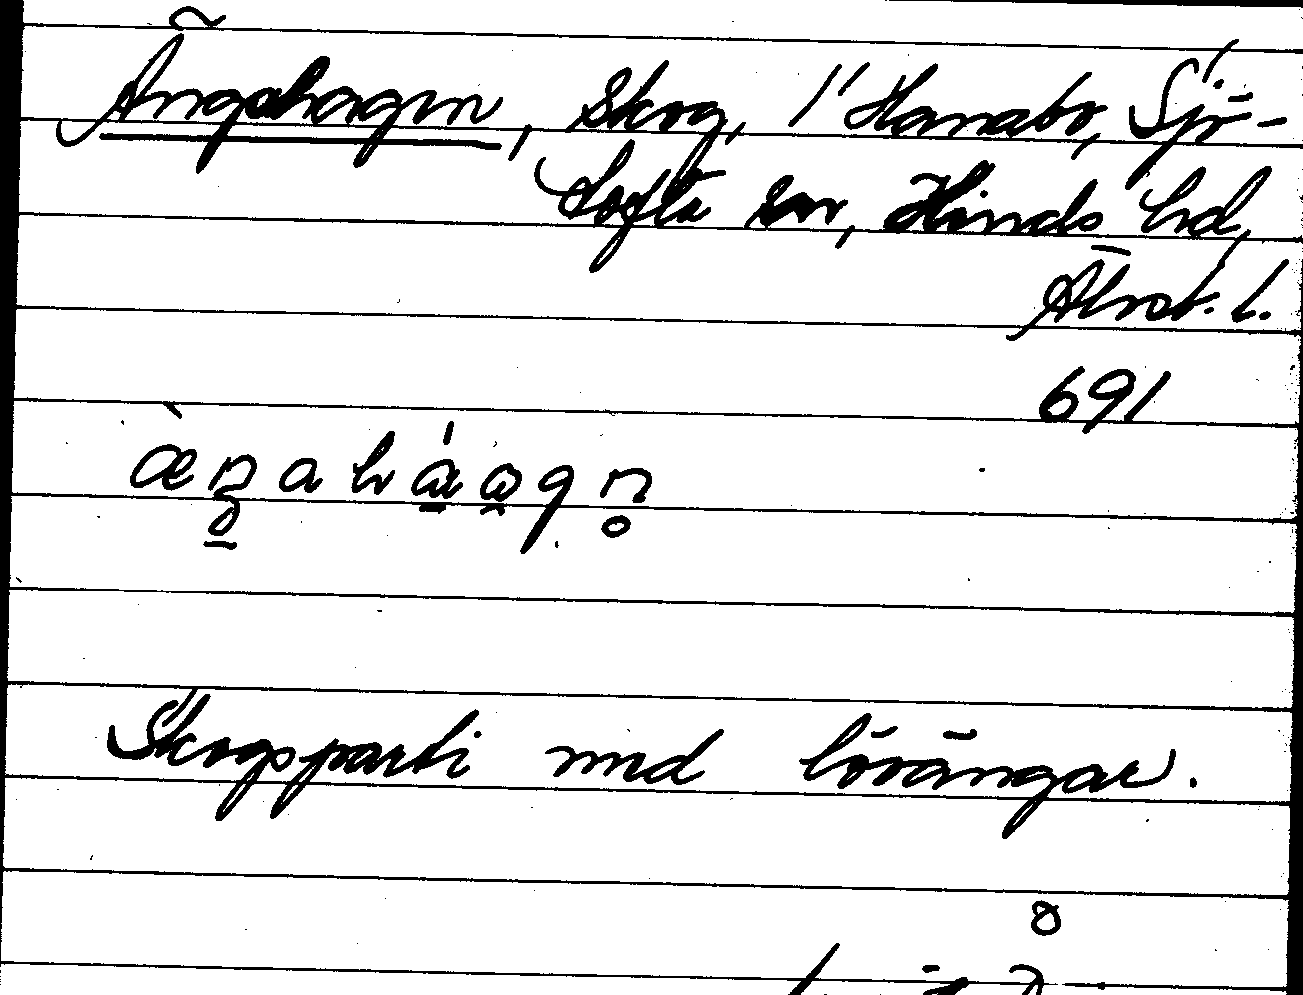 Ängahagen, Skog, i Hanabo, Sjö-
tofta sn, Kinds hd,
Älvsb. l.
691
Skogsparti med lövängar.